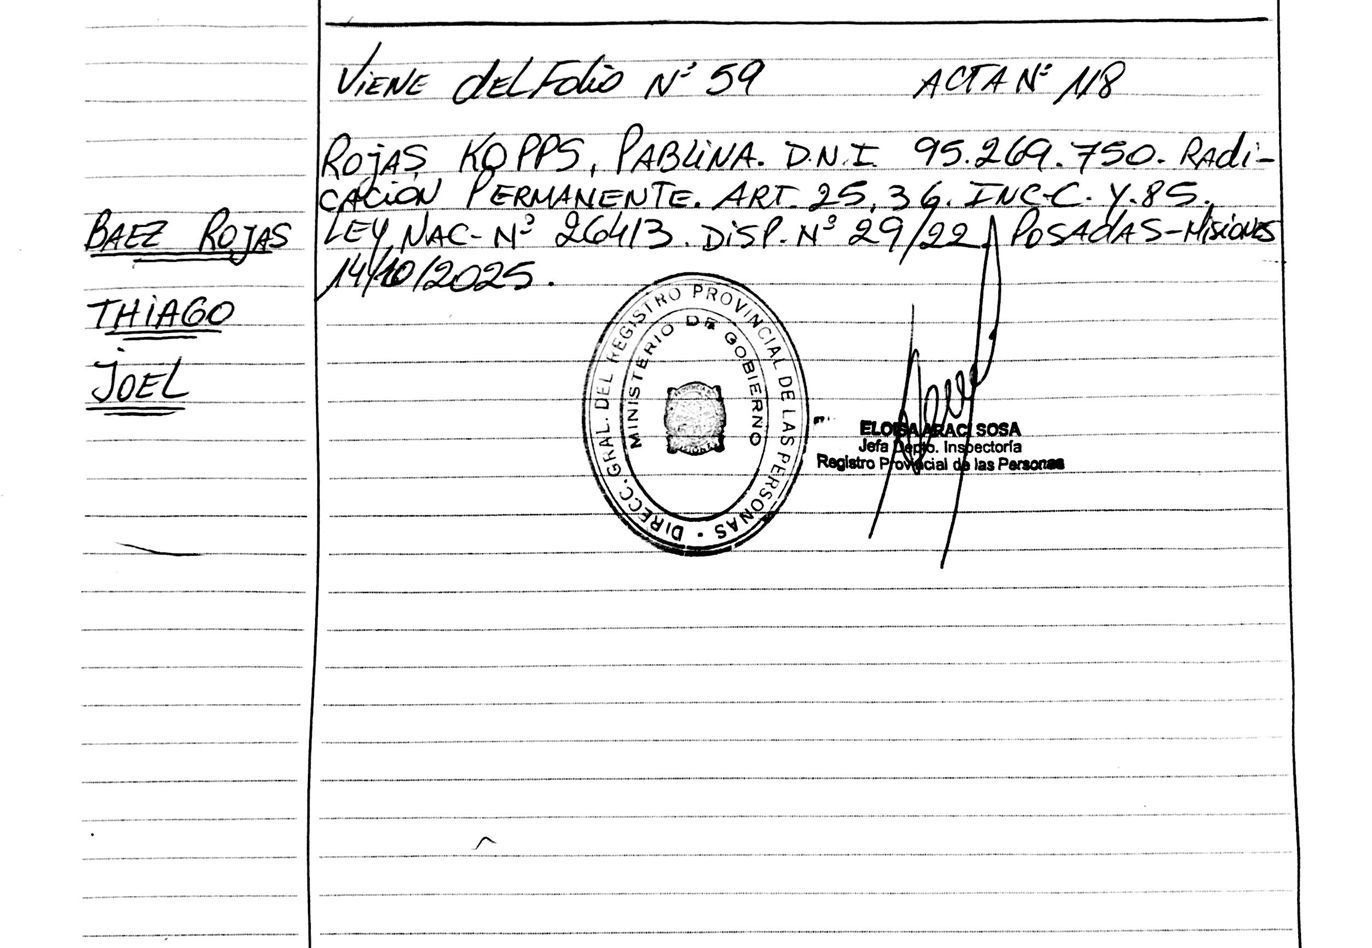 Viene del Folio Nº 59 Acta Nº 118
Rojas Kopps, Pablina. D.N.I. 95.269.750. Radi-
cación Permanente. Art. 25, 36. Inc-C. Y. 85.
Ley, Nac- Nº 26413. Disp. Nº 29/22, Posadas-Misiones
14/10/2025.
Baez Rojas
Thiago
Joel
DIRECC. GRAL. DEL REGISTRO PROVINCIAL DE LAS PERSONAS
MINISTERIO DE GOBIERNO
ELOISA ARACI SOSA
Jefa Depto. Inspectoría
Registro Provincial de las Personas